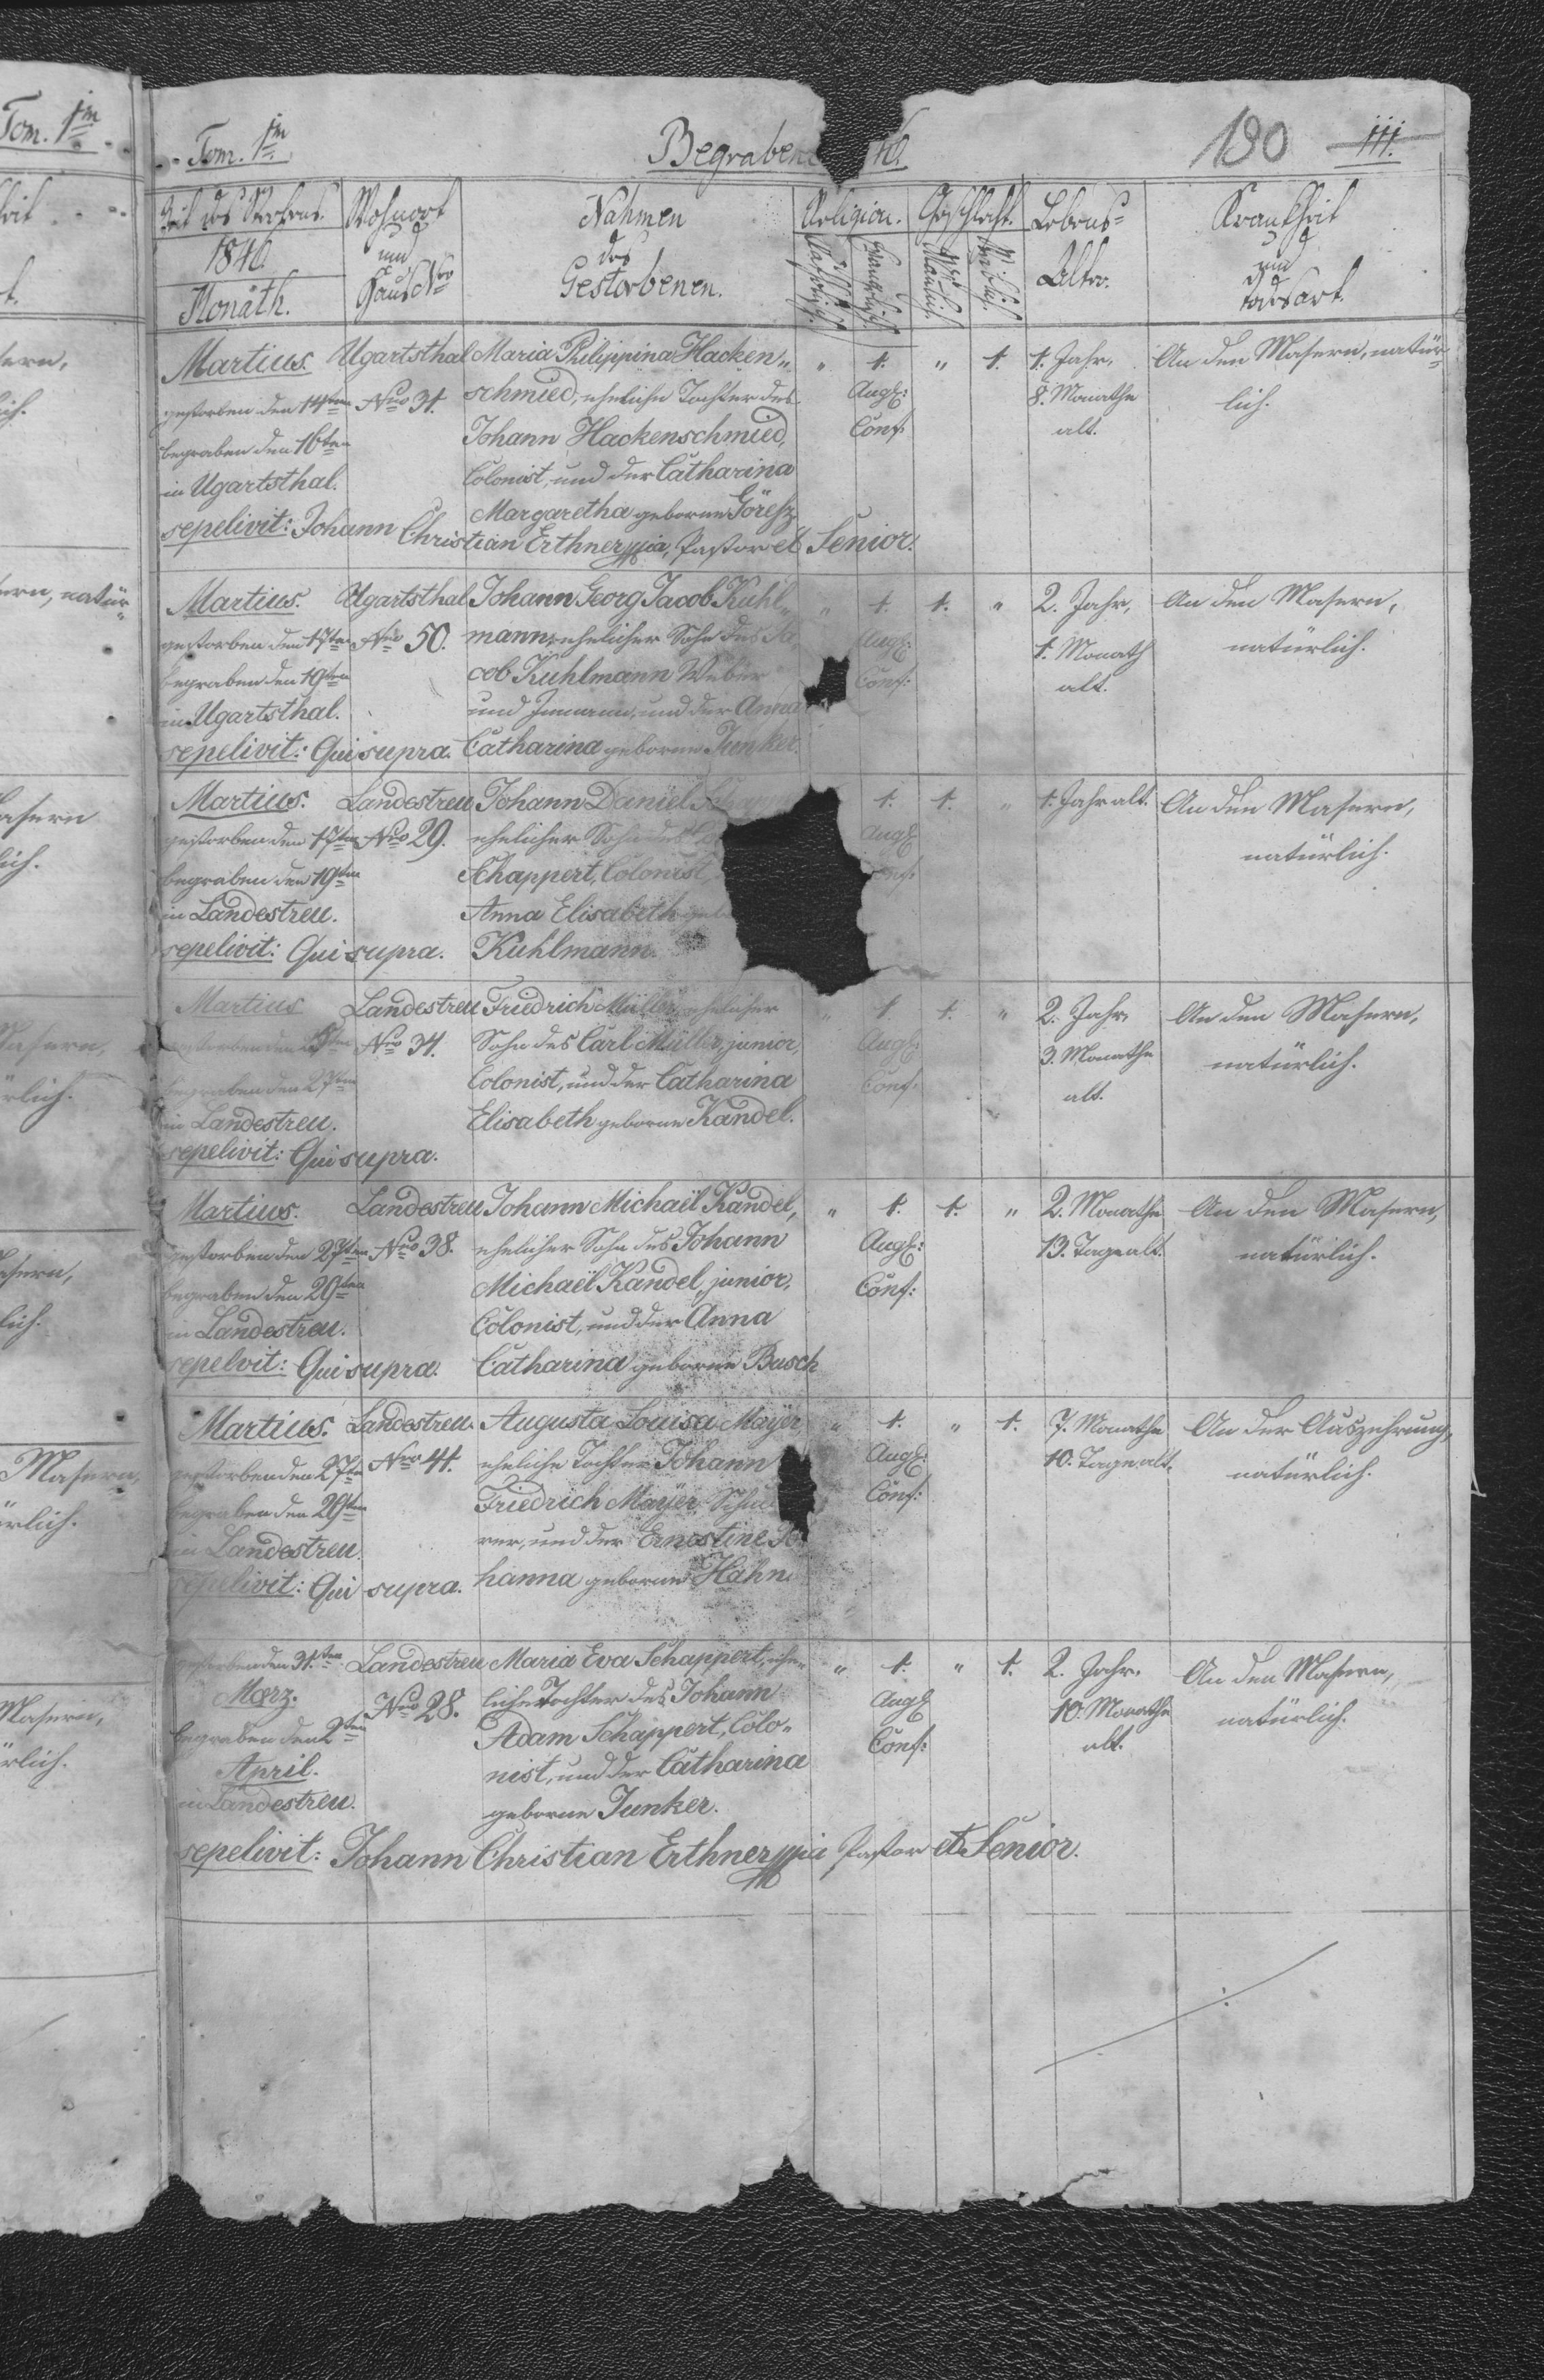 Tom. 1m
Begrabene 40.
190 111.
Zeit des Sterbens. Wohnort Nahmen Religion. Geschlecht. Lebens= Krankheit
1840. und des Katholisch. Evangelisch. Männlich. Weiblich. Alter. und
Monath. Haus Nro Gestorbenen. Todesart.
Martius. Ugartsthal Maria Philippina Hacken„ „ 1. „ 1. 1. Jahr, An den Masern, natür„
gestorben den 14ten Nro 31. schmied, eheliche Tochter des Augs: 8. Monathe lich.
begraben den 16ten Johann Hackenschmied, Conf: alt.
in Ugartsthal. Colonist, und der Catharina
Margaretha geborne Göresz
sepelivit: Johann Christian Erthner mpia, Pastor et Senior.
Martius. Ugartsthal Johann Georg Jacob Kuhl„ „ 1. 1. „ 2. Jahr, An den Masern,
gestorben den 17ten Nro 50. mann, ehelicher Sohn des Ja Augs: 1. Monath natürlich.
begraben den 19ten cob Kuhlmann Weber Conf: alt.
in Ugartsthal. und Inmann, und der Anna
sepelivit: Qui supra. Catharina geborne Junker.
Martius. Landestreu Johann Daniel Schapp 1. 1. „ 1. Jahr alt. An den Masern,
gestorben den 17ten Nro 29. ehelicher Sohn des Augs: natürlich.
begraben den 19ten Schappert, Colonist, Conf:
in Landestreu. Anna Elisabeth geb
sepelivit: Qui supra. Kuhlmann.
Martius Landestreu Friedrich Müller, ehelicher „ 1. 1. „ 2. Jahr, An den Masern,
gestorben den Nro 34. Sohn des Carl Müller, junior, Augs: 3. Monathe natürlich.
begraben den 27ten Colonist, und der Catharina Conf: alt.
in Landestreu. Elisabeth geborne Kandel.
sepelivit: Qui supra.
Martius. Landestreu Johann Michaël Kandel, „ 1. 1. „ 2. Monathe An den Masern,
gestorben den 27ten Nro 38. ehelicher Sohn des Johann Augs: 13. Tage alt. natürlich.
begraben den 29ten Michaël Kandel, junior, Conf:
in Landestreu. Colonist, und der Anna
sepelvit: Qui supra. Catharina geborne Busch
Martius. Landestreu. Augusta Louisa Mayer, „ 1. „ 1. 7. Monathe An der Auszehrung,
gestorben den 27ten Nro 44. eheliche Tochter Johann Augs: 10. Tage alt. natürlich.
begraben den 29ten Friedrich Mayer Schul Conf:
in Landestreu. rer, und der Ernestine Jo
sepelivit: Qui supra. hanna geborne Hahn.
gestorben den 31.ten Landestreu Maria Eva Schappert, ehe„ „ 1. „ 1. 2. Jahr, An den Masern,
Maerz. Nro 28. liche Tochter des Johann Augs: 10. Monathe natürlich.
begraben den 2ten Adam Schappert, Colo„ Conf: alt.
April. nist, und der Catharina
in Landestreu. geborne Junker.
sepelivit: Johann Christian Erthner mpia Pastor et Senior.